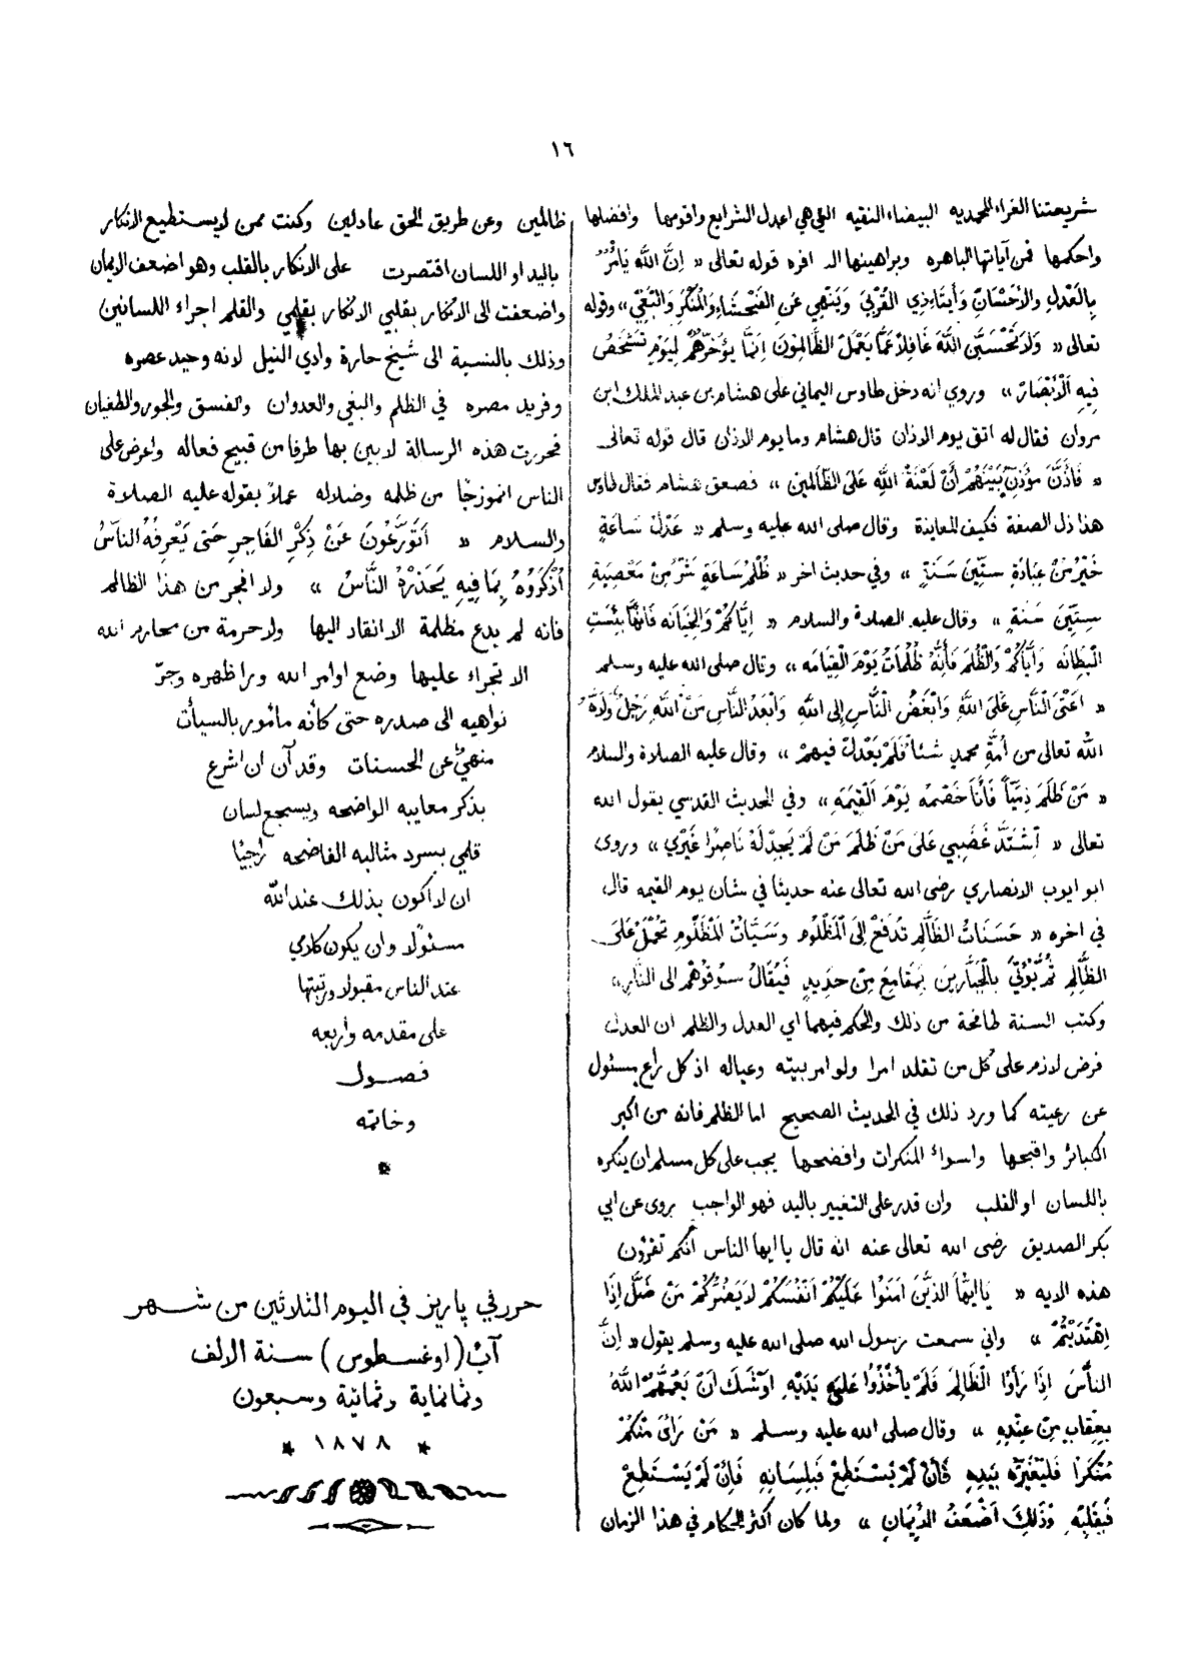 ١٦
شريعتنا الغراء المحمديه البيضاء النقيه التي هي اعدل الشرايع واقومها وافضلها
واحكمها فمن آياتها الباهره وبراهينها الـ افره قوله تعالى « اِنَّ اللّٰهَ يَامُرُ
بِالْعَدْلِ والاُحْسَانِ وَأيتَاءِذِي القُرْبَى وَيَنْهي عَنِ الفَحْشَاءِ وَالْمُنْكَرِ وَالْبَغْي » وقوله
تعالى « وَلاَ تَحْسَبَنَّ اللّٰهَ غَافِلاً عَمَّا يَعْمَلُ الظَّالِمُونَ اِنَّمَا يؤَخِّرُهُمْ لِيَوْمٍ تَشْخَصُ
فِيهِ اَلْأَبْصَارُ » وروي انه دخل طاوس اليماني على هشام بن عبد الملك ابن
مروان فقال له اتق يوم الاذان قال هشام وما يوم الاذان قال قوله تعالى
« فَاَذَّنَ مؤَذِّنٌ بَيْنَهُمْ أَنْ لَعْنَةُ اللّٰهِ عَلَى الظَّالِمِينَ » فصعق هشام فقال طاوس
هذا ذل الصفة فكيف المعاينة وقال صلى الله عليه وسلم « عَدْلُ سَاعَةٍ
خَيْرٌ مِنْ عِبَادَةِ سِتّينَ سَنَةٍ » وفي حديث اخر « ظُلْمُ سَاعَةٍ شَرٌّ مِنْ مَعْصِيَةِ
سِتِّينَ سَنَةٍ » وقال عليه الصلاة والسلام « اِيَّاكُمْ وَالْخِيَانَه فَاِنَّهَا بِئسَتِ
الْبِطَانَه وَاِيَّاكُمْ وَالظُّلْمَ فَاِنَّهُ ظُلُمَاتٌ يَوْمَ الْقِيَامَه » وقال صلى الله عليه وسلم
« اَعْتَى النَّاسِ عَلَى اللّٰهِ وَاَبْغَضُ النَّاسِ إِلى اللّٰهِ وَاَبْعَدُ النَّاسِ مِنَ اللّٰهِ رَجُلٌ وَلاَّهُ
اللّٰه تعالى من اُمَّةِ محمدٍ شئاً فَلَمْ يَعْدِلْ فيهمْ » وقال عليه الصلاة والسلام
« مَنْ ظَلَمَ ذِمِّيّاً فَأَنَا خَصْمُه يَوْمَ الْقِيَمَهِ » وفي الحديث القدسي يقول الله
تعالى « اِشْتَدَّ غَضَبِي عَلَى مَنْ ظَلَمَ مَنْ لَمْ يَجِدْ لَهُ نَاصِرًا غَيْرِي » وروى
ابو ايوب الانصاري رضى الله تعالى عنه حديثا في شان يوم القيمه قال
في اخره « حَسَنَاتُ الظَّالِمِ تُدْفَعُ إِلَى اَلْمَظْلُومِ وسَيّاتُ الْمَظْلُومِ تُحْمَلُ عَلَى
الظَّالِمِ ثُمَّ يُؤْتَى بِالْجَبَّارِينَ بِمَقَامِعَ مِنْ حَدِيدٍ فَيُقَالُ سُوقُوهُمْ الى النَّارِ »
وكتب السنة طافحة من ذلك والحكم فيهما اي العدل والظلم ان العدل
فرض لازم على كل من تقلد امرا ولو امر بيته وعياله اذ كل راع مسئول
عن رعيته كما ورد ذلك في الحديث الصحيح اما الظلم فانه من اكبر
الكبائر واقبحها واسواء المنكرات وافضحها يجب على كل مسلم ان ينكره
باللسان او القلب وان قدر على التغيير باليد فهو الواجب يروى عن ابي
بكر الصديق رضى الله تعالى عنه انه قال يا ايها الناس أنكم تقرؤن
هذه الايه « يَا اَيُّهاَ الذِّينَ اَمَنُوا عَلَيْكُمْ اَنْفُسَكُمْ لاَ يَضُرُّكُمْ مَنْ ضَلَّ إِذَا
اِهْتَدَيْتُمْ » واني سمعت رسول الله صلى الله عليه وسلم يقول « اِنَّ
النَّاسَ اِذَا رَأَوُا الْظَالِمَ فَلَمْ يأخُذُوا عَلىَ يَدَيْهِ اَوْشَكَ اَنْ يَعُمَّهُمُ اللّٰهُ
بِعِقَابٍ مِنْ عِنْدِهِ » وقال صلى الله عليه وسلم « مَنْ رَائَ مَنْكُمْ
مُنْكَرًا فَلْيُغَيِّرْه بِيَدِهِ فَاِنْ لَمْ يَسْتَطِعْ فَبِلِسَانِهِ فَاِنْ لَمْ يَسْتَطِعْ
فَبِقَلْبِهِ وَذَلِكَ اَضْعَفُ الاِيْمَانِ » ولما كان اكثر الحكام في هذا الزمان
ظالمين وعن طريق الحق عادلين وكنت ممن لا يستطيع الانكار
باليد او اللسان اقتصرت على الانكار بالقلب وهو اضعف الايمان
واضعفت الى الانكار بقلبي الانكار بقلمي والقلم اجراء اللسانين
وذلك بالنسبة الى شيخ حارة وادي النيل لانه وحيد عصره
وفريد مصره في الظلم والبغي والعدوان والفسق والجور والطغيان
فحررت هذه الرسالة لابين بها طرفا من قبيح فعاله واعرض على
الناس انموزجًا من ظلمه وضلاله عملاً بقوله عليه الصلاة
والسلام « اَتَوَرَّعُونَ عَنْ ذِكْرِ الفَاجِرِ حَتى يَعْرِفُهُ النَّاسُ
أُذْكُرُوهُ بِمَا فِيهِ يَحْذَرْهُ النَّاسُ » ولا افجر من هذا الظالم
فانه لم يدع مظلمة الا انقاد اليها ولا حرمة من محارم الله
الا تجراء عليها وضع اوامر الله ورا ظهره وجرّ
نواهيه الى صدره حتى كأنه مأمور بالسيأت
منهيٌ عن الحسنات وقد آن ان اشرع
بذكر معايبه الواضحه ويسجع لسان
قلمي بسرد مثالبه الفاضحه راجيًا
ان لا اكون بذلك عند اللّٰه
مسئولًا وان يكون كلامي
عند الناس مقبولا ورتبتها
على مقدمه وأربعه
فصول
وخاتمه
*
حرر في باريز في اليوم الثلاثين من شهر
آبْ ( اوغسطوس ) سنة الالف
وثمانماية وثمانية وسبعون
* ١٨٧٨ *